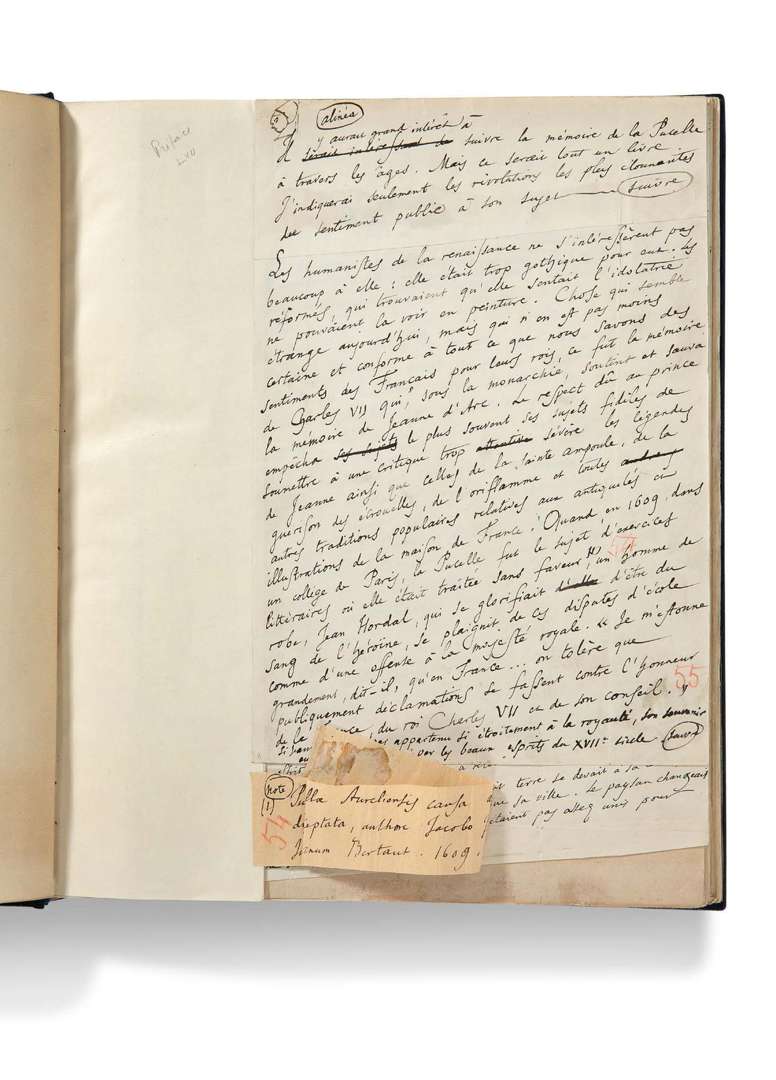 Préface
LXII
alinéa
y aurait grand intérêt à
Il serait intéressant de suivre la mémoire de la Pucelle
à travers les âges. Mais ce serait tout un livre
J'indiquerai seulement les révolutions les plus étonnantes
du sentiment public à son sujet suivre
Les humanistes de la renaissance ne s'intéressèrent pas
beaucoup à elle : elle était trop gothique pour eux. Les
réformés, qui trouvaient qu'elle sentait l'idolatrie
ne pouvaient la voir en peinture. Chose qui semble
étrange aujourd'hui, mais qui n'en est pas moins
certaine et conforme à tout ce que nous savons des
sentiments des Français pour leurs rois, ce fut la mémoire
de Charles VII qui, sous la monarchie, soutint et sauva
la mémoire de Jeanne d'Arc. Le respect dû au prince
empêcha ses sujets le plus souvent ses sujets fidèles de
soumettre à une critique trop attentive sévère les légendes
de Jeanne ainsi que celles de la sainte ampoule, de la
guérison des écrouelles, de l'oriflamme et toutes
autres traditions populaires relatives aux antiquités et
illustrations de la maison de France. Quand en 1609, dans
un collège de Paris, la Pucelle fut le sujet d'exercices
54
littéraires où elle était traitée sans faveur (1), un homme de
robe, Jean Hordal, qui se glorifiait d'être du
sang de l'héroïne, se plaignit de ces disputes d'école
comme d'une offense à la majesté royale. « Je m'étonne
grandement, dit-il, qu'en France... on tolère que
publiquement déclamations se fassent contre l'honneur
55
de la France, du roi Charles VII et de son conseil. »
appartenu si étroitement à la royauté, son souvenir
par les beaux esprits du XVIIe siècle suivre
terre se devait à sa
que sa ville. Le paysan champenois
étaient pas assez unis pour
note
(1)
54
Puellæ Aureliensis causa
disptata, authore Jacobo
Jonum Bertaut. 1609.